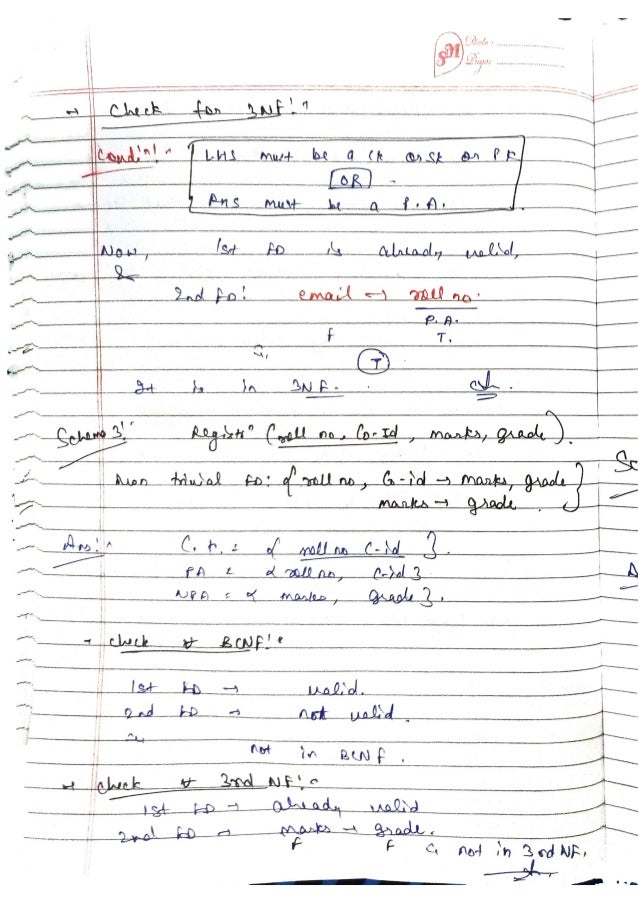 SM Date :
Page :
→ Check for 3NF :-
Condin :- LHS must be a CK or SK or PK
OR
RHS must be a P.A.
Now, 1st FD is already valid,
&
2nd FD : email → roll no.
P.A.
F T.
T
It is in 3NF.
Schema 3 :- Registn (roll no, Co-Id, marks, grade).
Non trivial FD : { roll no, C-id → marks, grade
marks → grade }
Ans :- C.K. = { roll no C-id }.
PA = { roll no, C-id }
NPA = { marks, grade }.
→ Check BCNF :-
1st FD → valid.
2nd FD → not valid.
not in BCNF.
→ Check 3rd NF :-
1st FD → already valid
2nd FD → marks → grade.
F F not in 3rd NF.